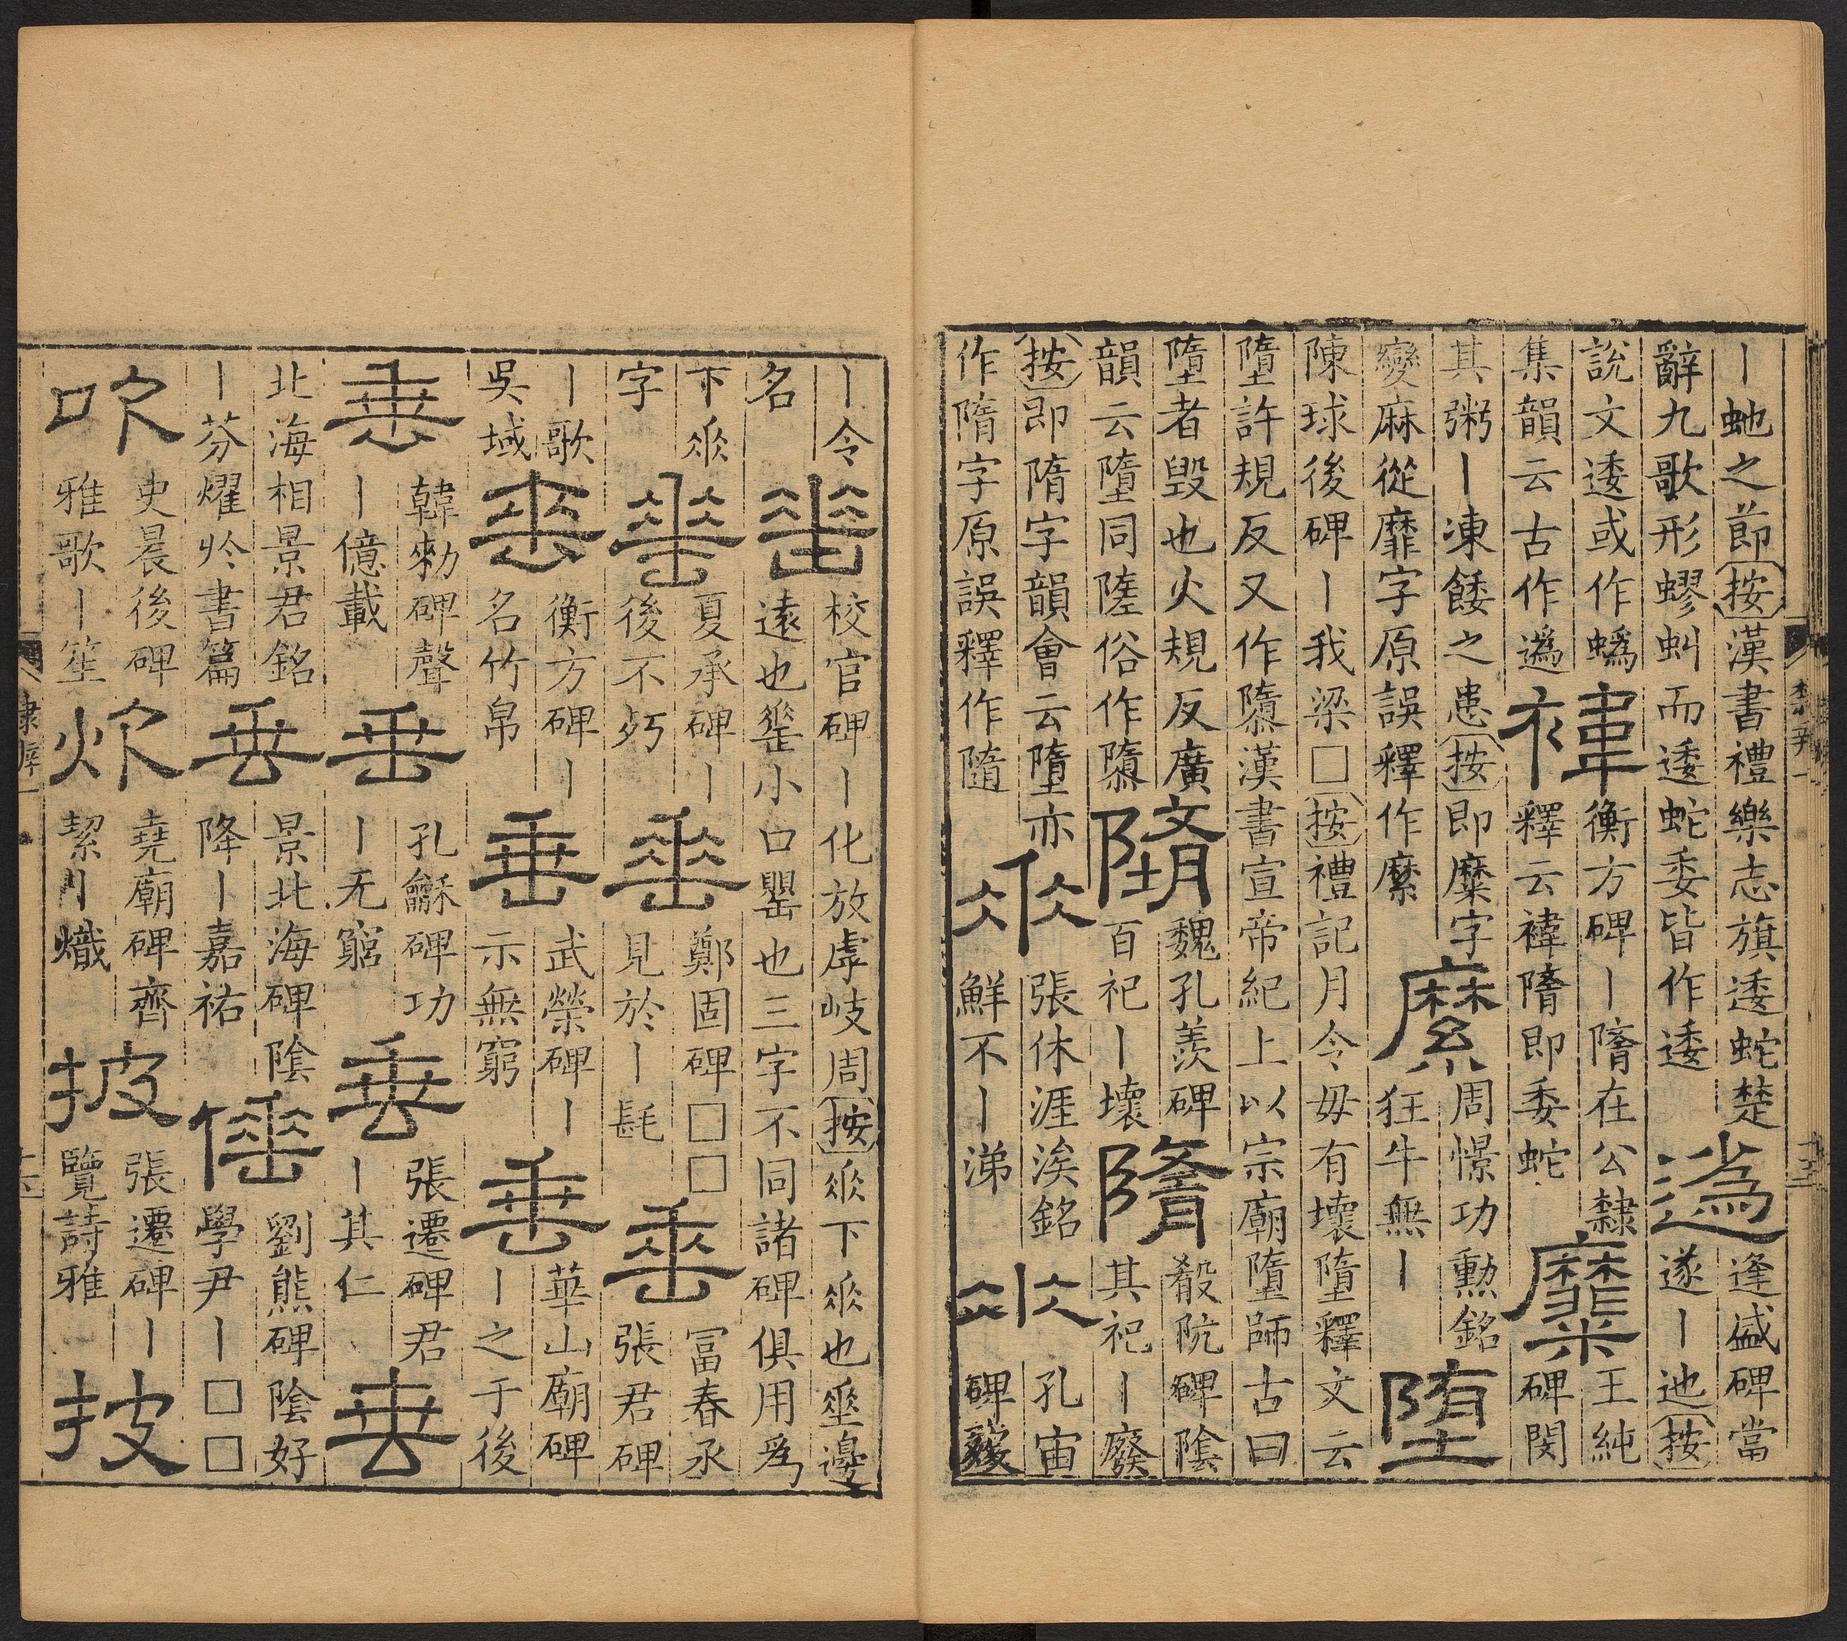 丨虵之節按漢書禮樂志旗逶蛇楚
辭九歌形蟉虯而逶蛇委皆作逶
逢盛碑當
遂丨迆按
說文逶或作蟡
集韻云古作
褘
衡方碑丨隋在公隸
釋云褘隋即委蛇
糜
王純
碑閔
其粥丨凍餧之患按即糜字
變麻從靡字原誤釋作縻
縻
周憬功勳銘
狂牛無丨
墮
陳球後碑丨我梁□按禮記月令毋有壞墮釋文云
墮許規反又作隳漢書宣帝紀上以宗廟墮師古曰
墮者毀也火規反廣
韻云墮同隓俗作隳
隋
魏孔羨碑
百祀丨壞
隋
殽阬碑陰
其祀丨廢
按即隋字韻會云墮亦
作隋字原誤釋作隨
𠂹
張休涯涘銘
鮮不丨涕
𠂹
孔宙
碑
丨令
名
垂
校官碑丨化放虖岐周按𠂹下𠂹也垂邊
遠也小口罌也三字不同諸碑俱用爲
下𠂹
字
垂
夏承碑丨
後不朽
垂
鄭固碑□□
見於丨髦
垂
冨春丞
張君碑
丨歌
吳域
垂
衡方碑丨
名竹帛
垂
武榮碑丨
示無窮
垂
華山廟碑
丨之于後
垂
韓勑碑聲
丨億載
垂
孔龢碑功
丨无窮
垂
張遷碑君
丨其仁
垂
北海相景君銘
丨芬燿於書篇
垂
景北海碑陰
降丨嘉祐
倕
劉熊碑陰好
學尹丨□□
吹
史晨後碑
雅歌丨笙
炊
堯廟碑齊
絜丨熾
披
張遷碑丨
覽詩雅
披